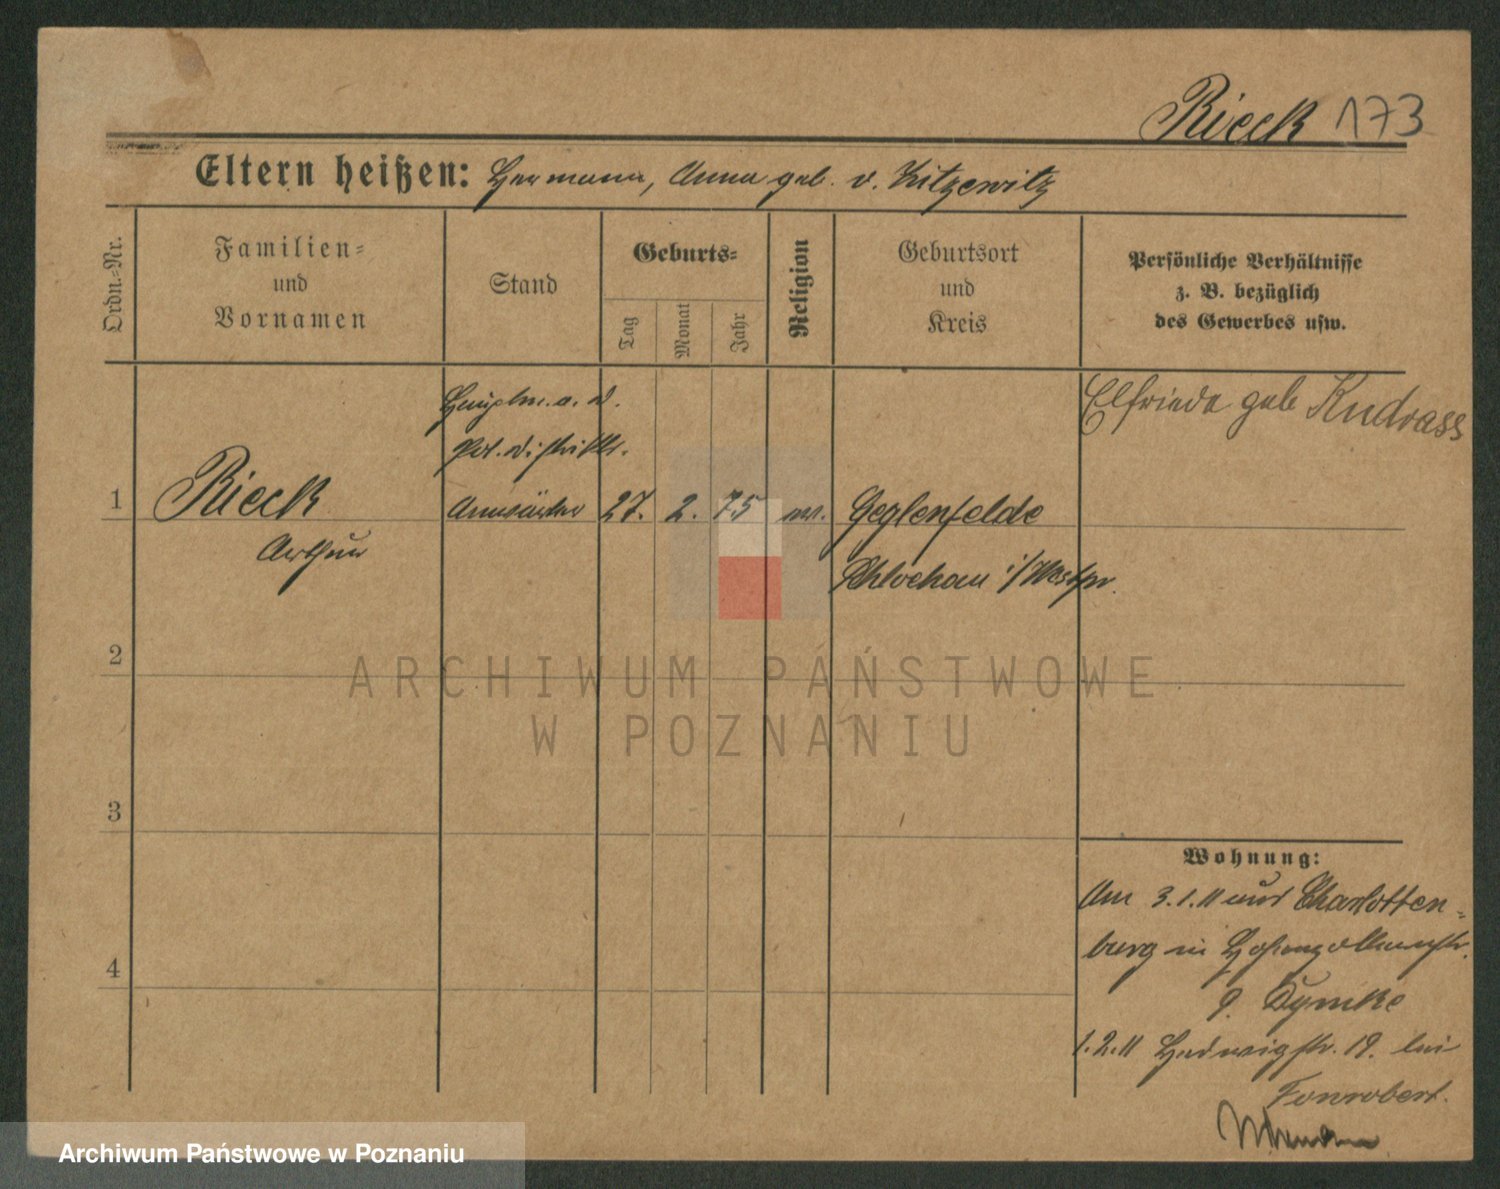 Rieck 173
Eltern heißen: Hermann, Anna geb. v. Zitzewitz
Ordn.=Nr.
Familien=
und
Vornamen
Stand
Geburts=
Tag
Monat
Jahr
Religion
Geburtsort
und
Kreis
Persönliche Verhältnisse
z. B. bezüglich
des Gewerbes usw.
Hauptm. a. D.
Pol. Distrikts.
Anwärter
1
Rieck
Arthur
27. 2. 75 ev.
Geglenfelde
Schlochau i/Westpr.
Elfriede geb Kudrass
2
3
4
Wohnung:
Am 3.1.11 aus Charlotten=
burg in Hohenzollernstr.
9. Dymke
1.2.11 Hedwigstr. 19. bei
Fonrobert.
ARCHIWUM PAŃSTWOWE
W POZNANIU
Archiwum Państwowe w Poznaniu